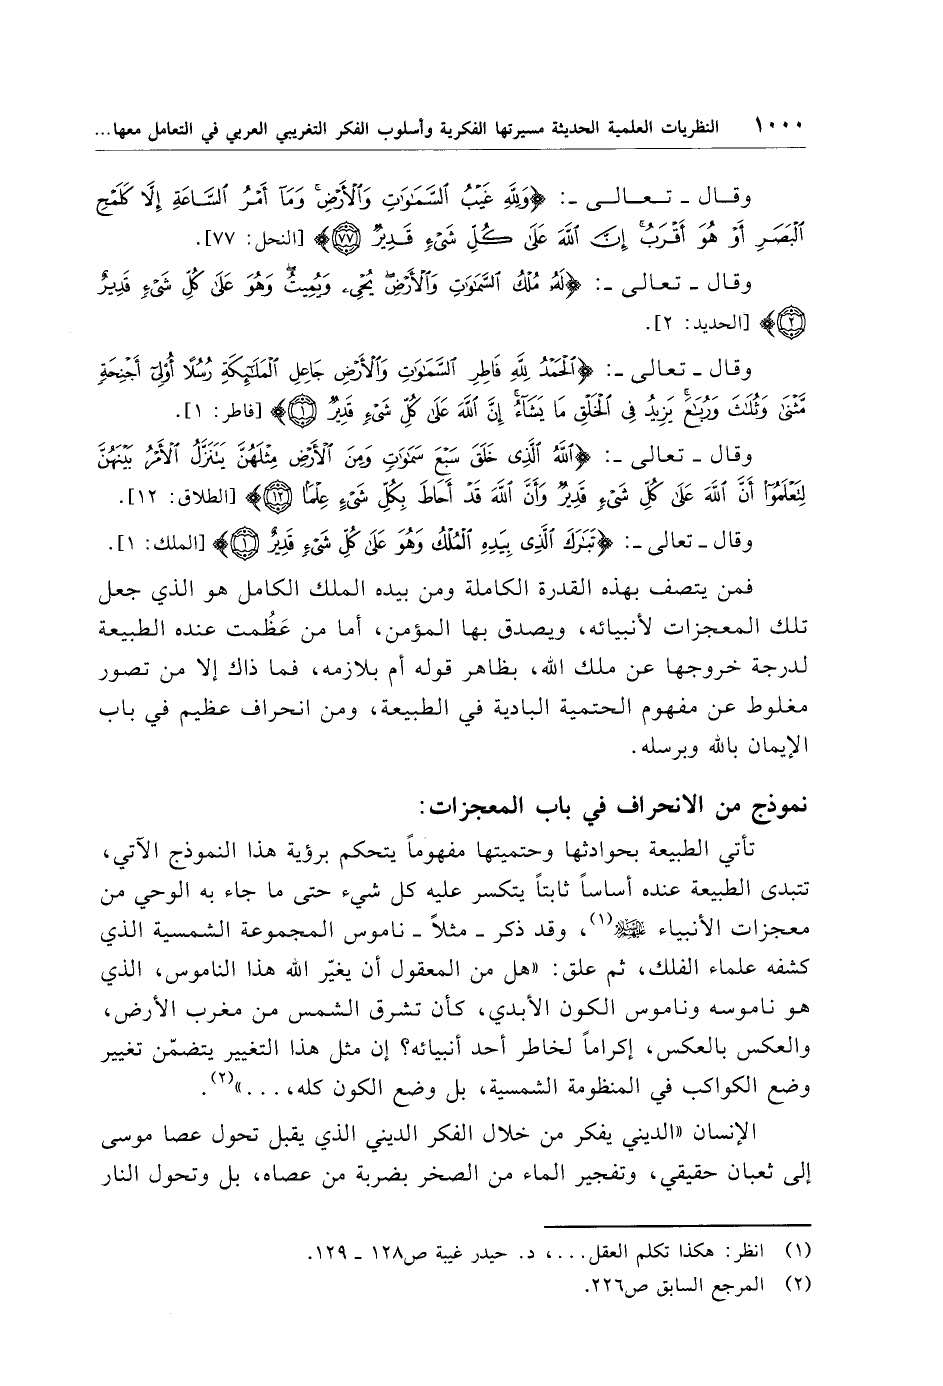 ١٠٠٠ النظريات العلمية الحديثة مسيرتها الفكرية وأسلوب الفكر التغريبي العربي في التعامل معها...
وقـال ـ تـعـالـى ـ: ﴿وَلِلَّهِ غَيْبُ السَّمَٰوَٰتِ وَالْأَرْضِ ۚ وَمَا أَمْرُ السَّاعَةِ إِلَّا كَلَمْحِ
الْبَصَرِ أَوْ هُوَ أَقْرَبُ ۚ إِنَّ اللَّهَ عَلَىٰ كُلِّ شَيْءٍ قَدِيرٌ ﴿٧٧﴾﴾ [النحل: ٧٧].
وقال ـ تـعـالى ـ: ﴿لَهُ مُلْكُ السَّمَٰوَٰتِ وَالْأَرْضِ ۖ يُحْيِۦ وَيُمِيتُ ۖ وَهُوَ عَلَىٰ كُلِّ شَيْءٍ قَدِيرٌ
﴿٢﴾﴾ [الحديد: ٢].
وقال ـ تعالى ـ: ﴿الْحَمْدُ لِلَّهِ فَاطِرِ السَّمَٰوَٰتِ وَالْأَرْضِ جَاعِلِ الْمَلَٰٓئِكَةِ رُسُلًا أُو۟لِىٓ أَجْنِحَةٍ
مَّثْنَىٰ وَثُلَٰثَ وَرُبَٰعَ ۚ يَزِيدُ فِى الْخَلْقِ مَا يَشَآءُ ۚ إِنَّ اللَّهَ عَلَىٰ كُلِّ شَىْءٍ قَدِيرٌ ﴿١﴾﴾ [فاطر: ١].
وقال ـ تعالى ـ: ﴿اللَّهُ الَّذِى خَلَقَ سَبْعَ سَمَٰوَٰتٍ وَمِنَ الْأَرْضِ مِثْلَهُنَّ يَتَنَزَّلُ الْأَمْرُ بَيْنَهُنَّ
لِتَعْلَمُوٓا۟ أَنَّ اللَّهَ عَلَىٰ كُلِّ شَىْءٍ قَدِيرٌ وَأَنَّ اللَّهَ قَدْ أَحَاطَ بِكُلِّ شَىْءٍ عِلْمًۢا ﴿١٢﴾﴾ [الطلاق: ١٢].
وقال ـ تعالى ـ: ﴿تَبَٰرَكَ الَّذِى بِيَدِهِ الْمُلْكُ وَهُوَ عَلَىٰ كُلِّ شَىْءٍ قَدِيرٌ ﴿١﴾﴾ [الملك: ١].
فمن يتصف بهذه القدرة الكاملة ومن بيده الملك الكامل هو الذي جعل
تلك المعجزات لأنبيائه، ويصدق بها المؤمن، أما من عَظُمت عنده الطبيعة
لدرجة خروجها عن ملك الله، بظاهر قوله أم بلازمه، فما ذاك إلا من تصور
مغلوط عن مفهوم الحتمية البادية في الطبيعة، ومن انحراف عظيم في باب
الإيمان بالله وبرسله.
نموذج من الانحراف في باب المعجزات:
تأتي الطبيعة بحوادثها وحتميتها مفهوماً يتحكم برؤية هذا النموذج الآتي،
تتبدى الطبيعة عنده أساساً ثابتاً يتكسر عليه كل شيء حتى ما جاء به الوحي من
معجزات الأنبياء (١)، وقد ذكر ـ مثلاً ـ ناموس المجموعة الشمسية الذي
كشفه علماء الفلك، ثم علق: «هل من المعقول أن يغيّر الله هذا الناموس، الذي
هو ناموسه وناموس الكون الأبدي، كأن تشرق الشمس من مغرب الأرض،
والعكس بالعكس، إكراماً لخاطر أحد أنبيائه؟ إن مثل هذا التغيير يتضمّن تغيير
وضع الكواكب في المنظومة الشمسية، بل وضع الكون كله، ...»(٢).
الإنسان «الديني يفكر من خلال الفكر الديني الذي يقبل تحول عصا موسى
إلى ثعبان حقيقي، وتفجير الماء من الصخر بضربة من عصاه، بل وتحول النار
(١) انظر: هكذا تكلم العقل...، د. حيدر غيبة ص١٢٨ ـ ١٢٩.
(٢) المرجع السابق ص٢٢٦.